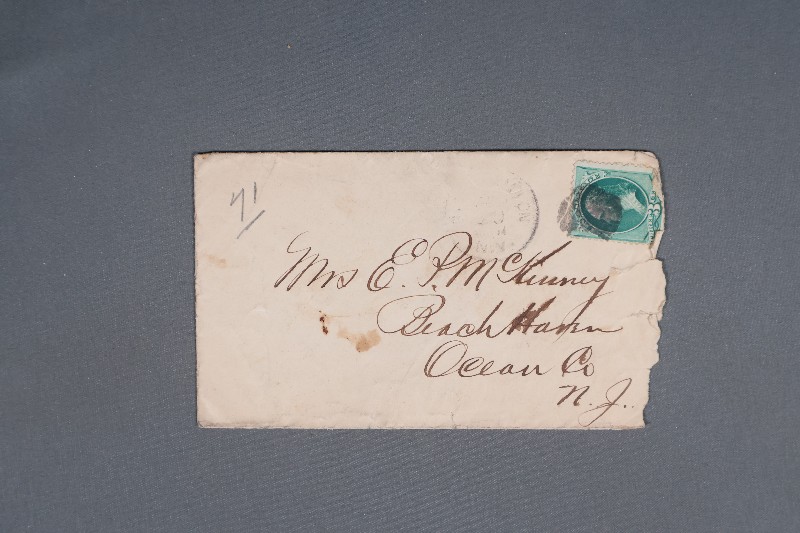 71
Mrs E. P. McKinney
Beach Haven
Ocean Co
N. J.